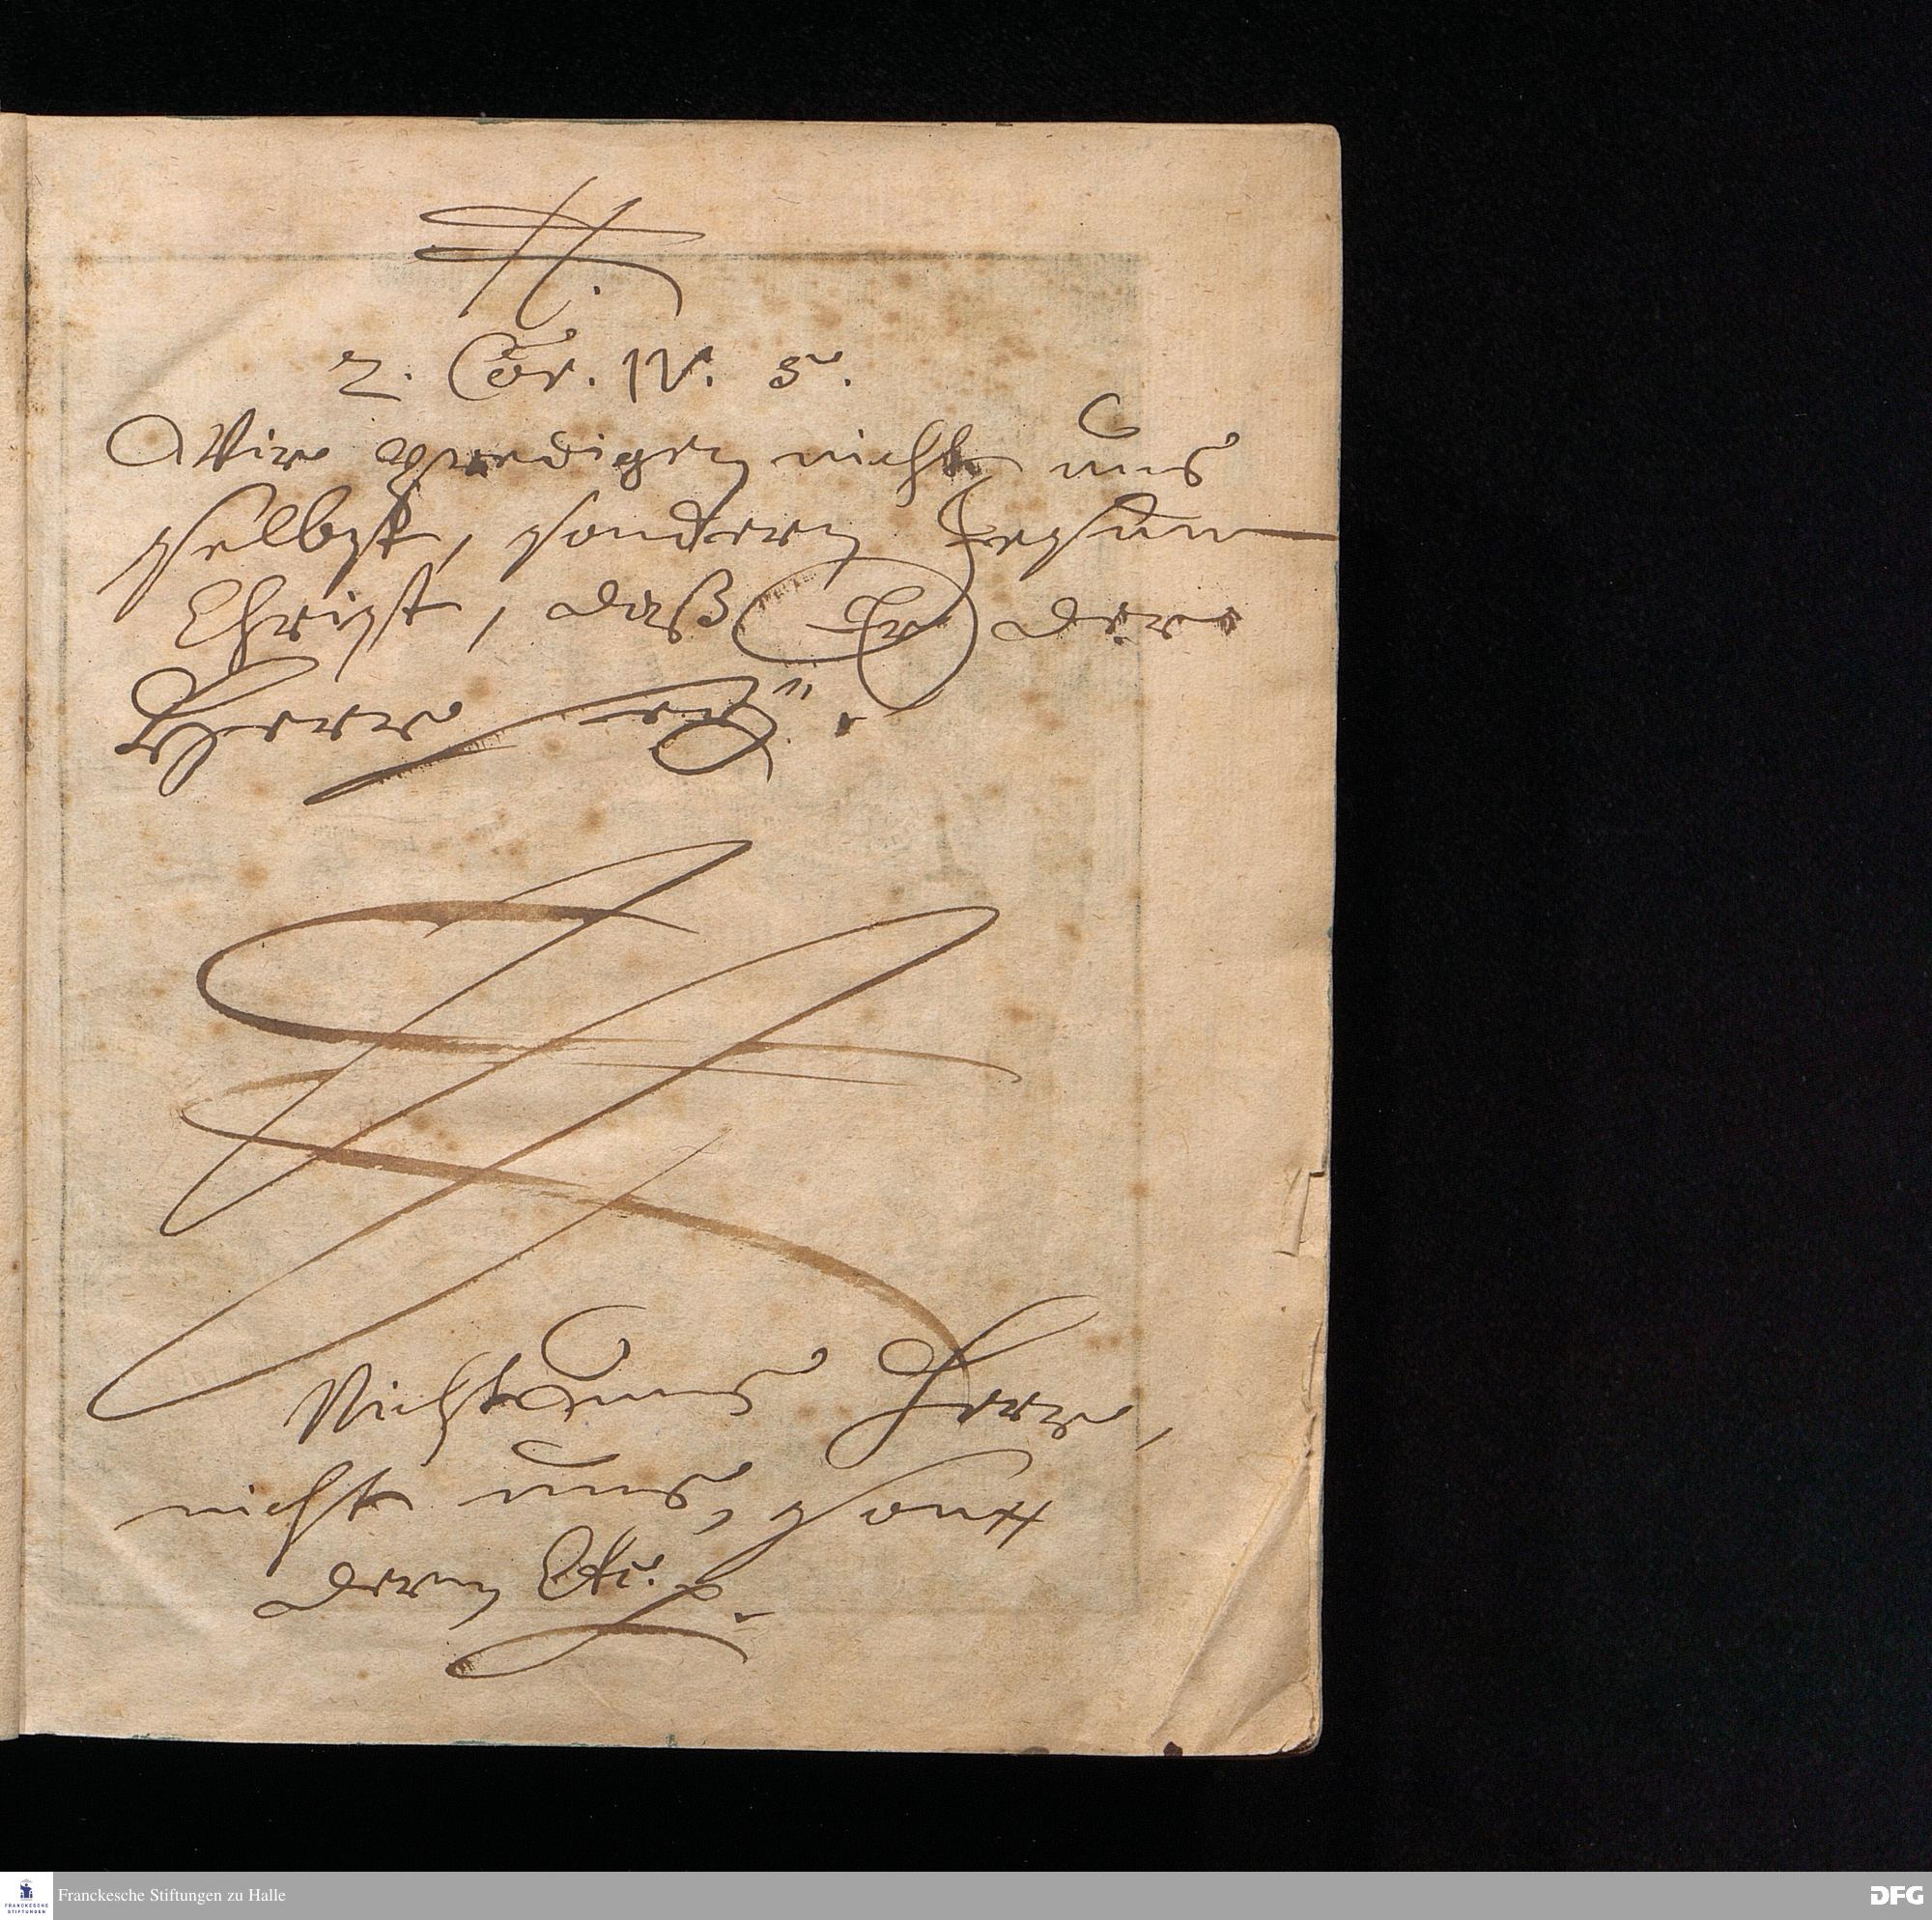 2. Cor. IV. 5.
Wir predigen nicht uns
selbst, sondern Jesum
Christ, daß Er der
Herr seÿ.
Nicht uns Herr,
nicht uns, son
dern
FRANCKESCHE
STIFTUNGEN
Franckesche Stiftungen zu Halle
DFG